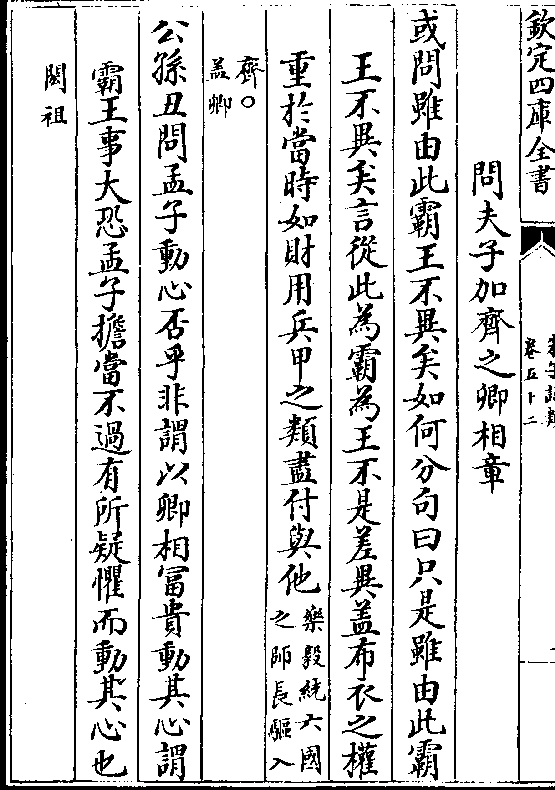 欽定四庫全書
卷五十二
問夫子加齊之卿相章
或問雖由此霸王不異矣如何分句曰只是雖由此霸
王不異矣言從此為霸為王不是差異盖布衣之權
重於當時如財用兵甲之類盡付與他
樂毅統六國
之師長驅入
齊〇
盖卿
公孫丑問孟子動心否乎非謂以卿相富貴動其心謂
霸王事大恐孟子擔當不過有所疑懼而動其心也
閎祖